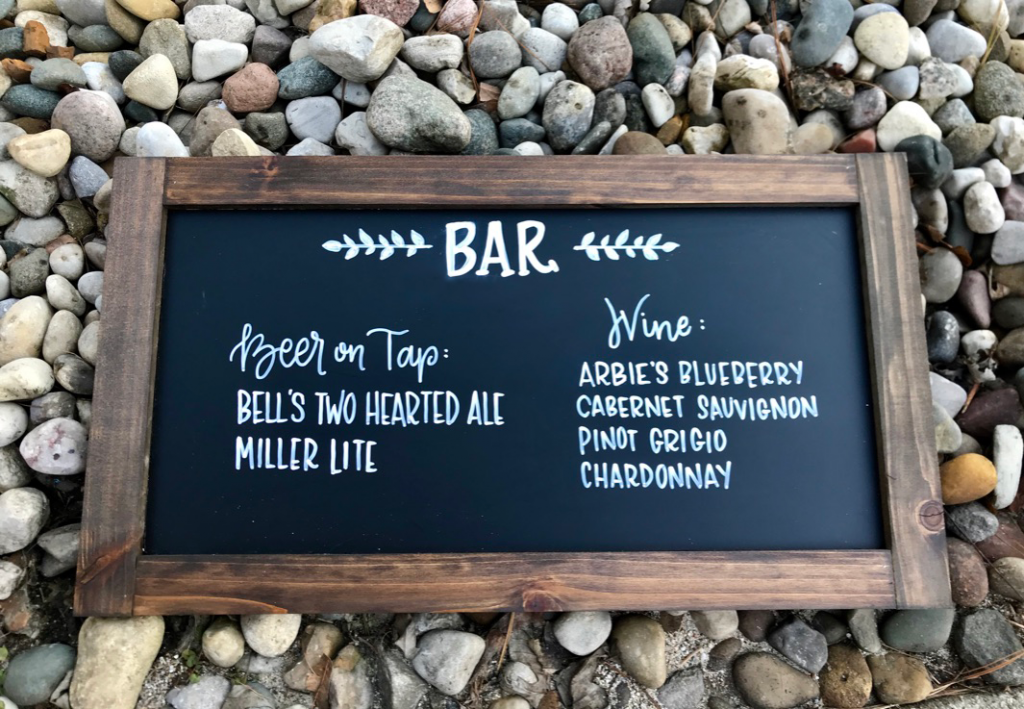 BAR
Beer on Tap:
BELL'S TWO HEARTED ALE
MILLER LITE
Wine:
ARBIE'S BLUEBERRY
CABERNET SAUVIGNON
PINOT GRIGIO
CHARDONNAY